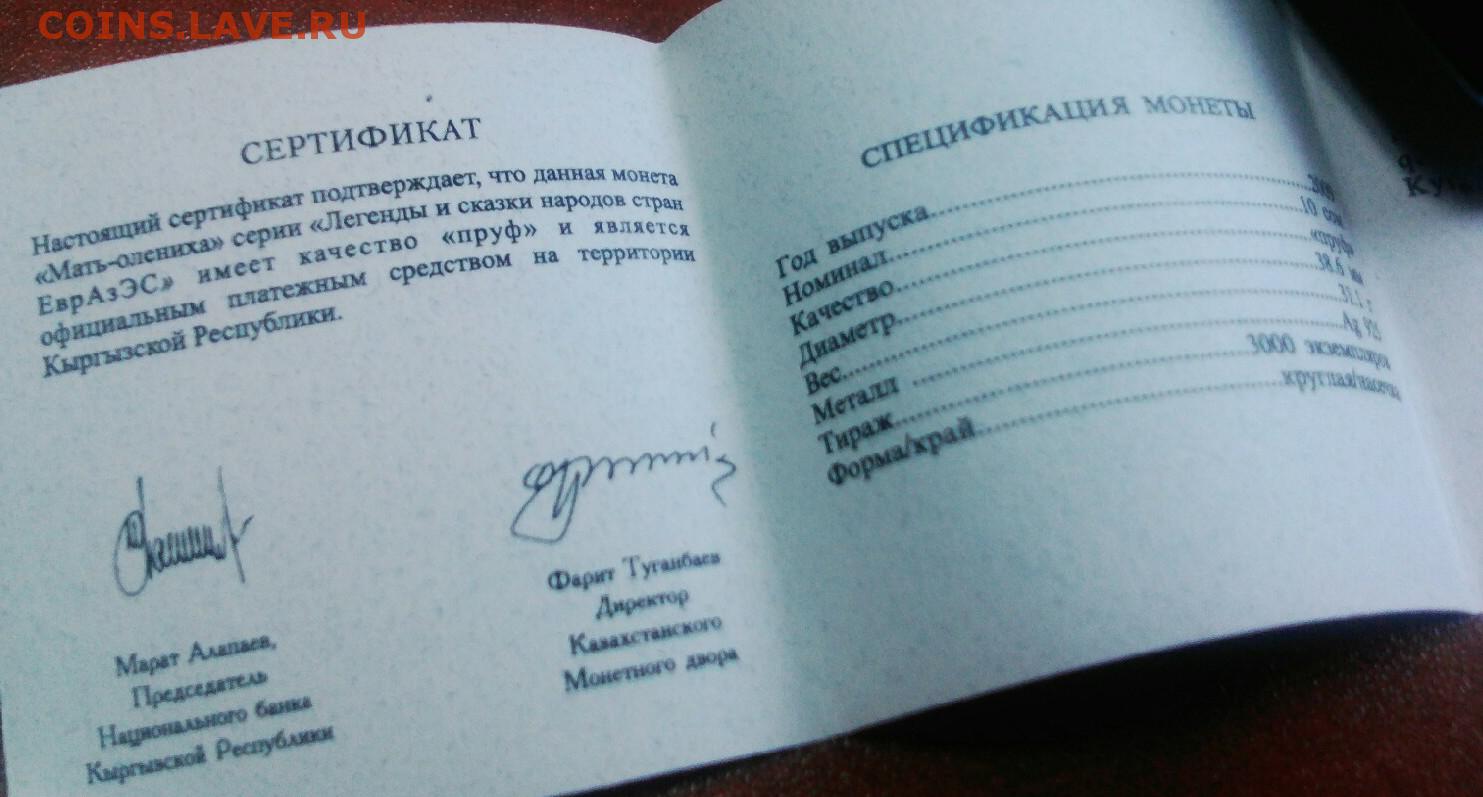 COINS.LAVE.RU
СЕРТИФИКАТ
Настоящий сертификат подтверждает, что данная монета
«Мать-олениха» серии «Легенды и сказки народов стран
ЕврАзЭС» имеет качество «пруф» и является
официальным платежным средством на территории
Кыргызской Республики.
Марат Алапаев,
Председатель
Национального банка
Кыргызской Республики
Фарит Туганбаев
Директор
Казахстанского
Монетного двора
СПЕЦИФИКАЦИЯ МОНЕТЫ
Год выпуска
Номинал 10 сом
Качество «пруф»
Диаметр 38.6 мм
Вес 31.1 г
Металл Ag 925
Тираж 3000 экземпляров
Форма/край круглая/насечка